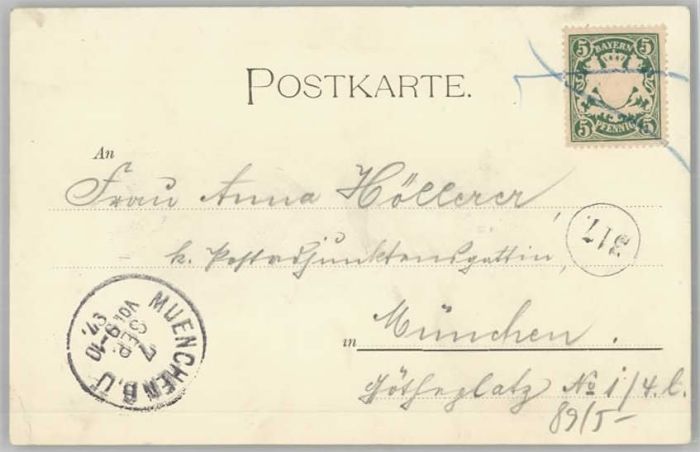 5 BAYERN 5
5 PFENNIG 5
POSTKARTE.
An
Frau Anna Höllerer,
k. Postadjunktensgattin,
317
in München.
Götheplatz No 1/4. l.
89/5-
MUENCHEN B.U
7 SEP.
VOR 9-10